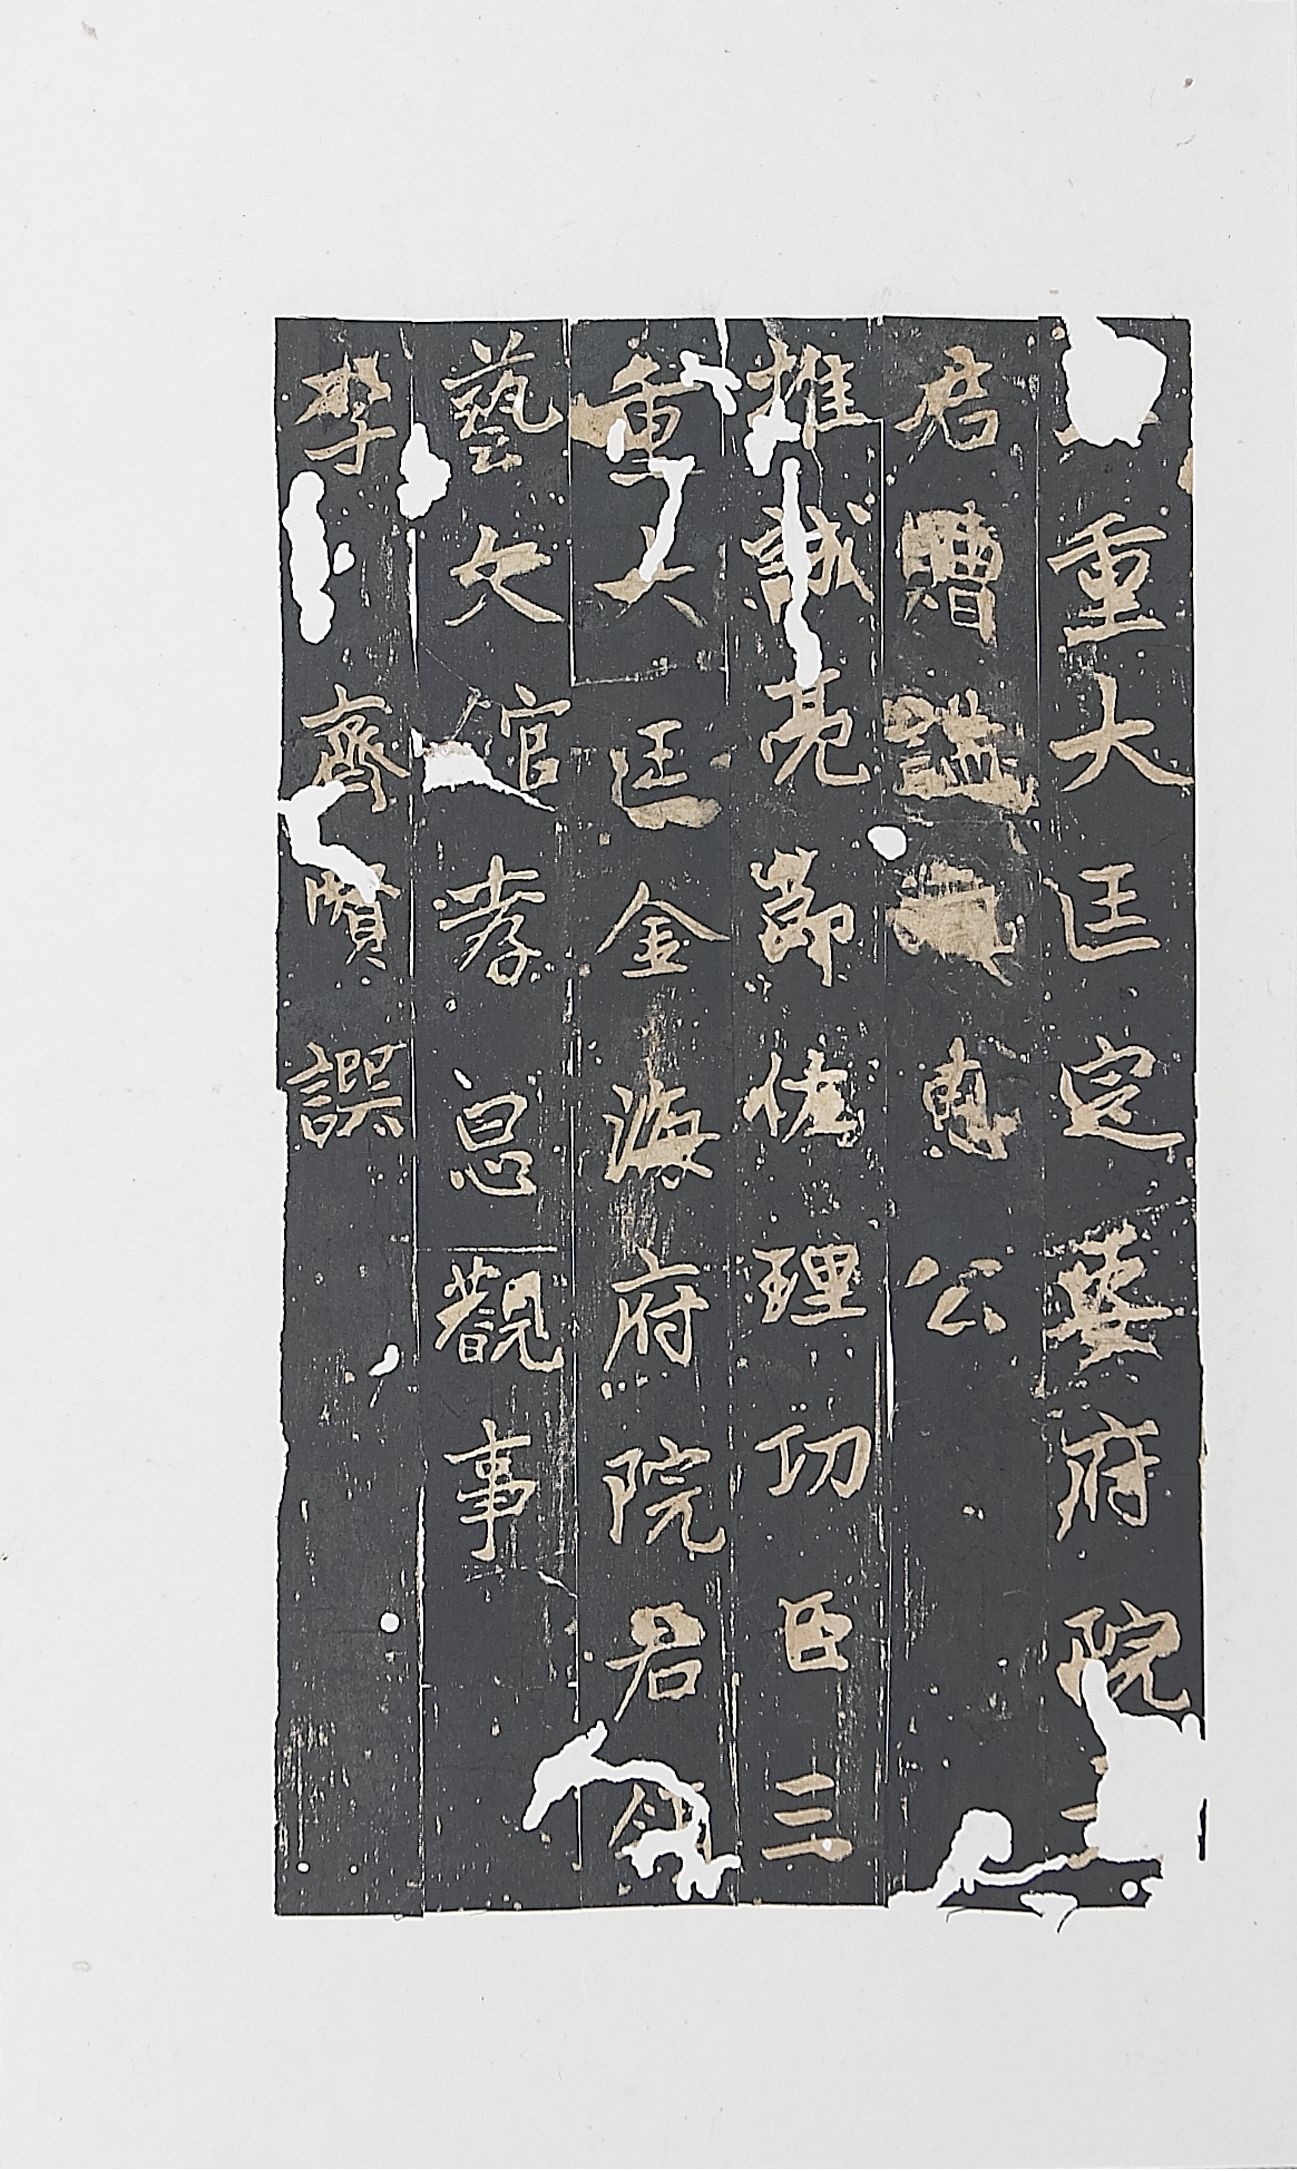 重大匡定府院
君贈諡惠公
推誠亮節佐理功臣三
重大匡金海府院君領
藝文館孝思觀事
李齊賢譔